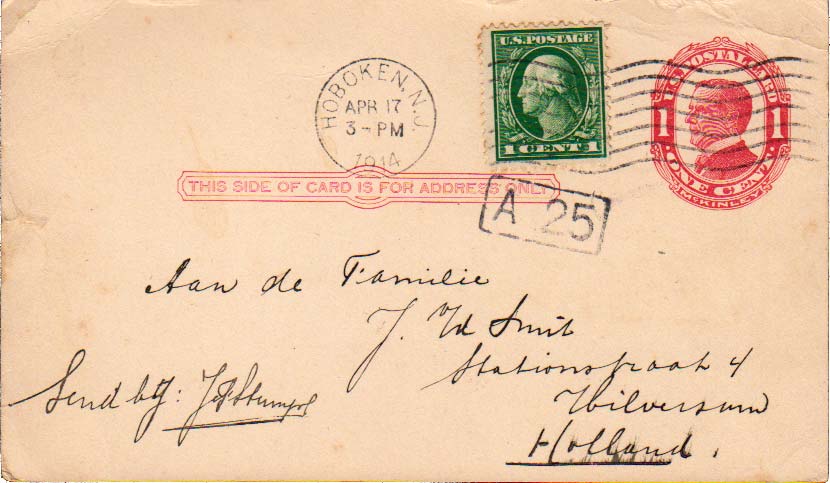 U.S. POSTAGE
1 CENT 1
U.S. POSTAL CARD
1 1
ONE CENT
McKINLEY
HOBOKEN, N.J.
APR 17
3 - PM
1914
THIS SIDE OF CARD IS FOR ADDRESS ONLY
A 25
Aan de Familie
J. Vd Smit
Stationstraat 4
Hilversum
Holland.
Send by: